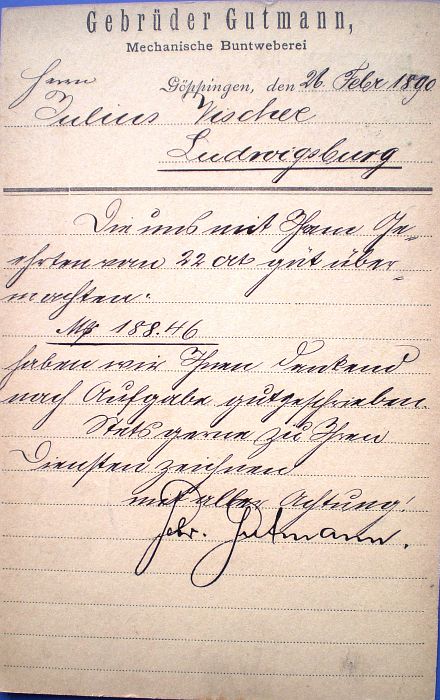 Gebrüder Gutmann,
Mechanische Buntweberei
Herrn
Göppingen, den 26. Febr 1890
Julius Vischer
Ludwigsburg
Die uns mit Ihrem Ge-
ehrten vom 22 ct gut über-
machten:
Mk 188.46
haben wir Ihnen dankend
nach Aufgabe gutgeschrieben.
Stets gerne zu Ihren
Diensten zeichnen
mit aller Achtung!
Gebr. Gutmann.